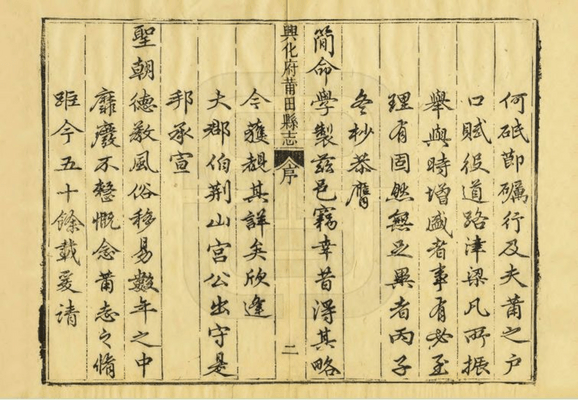 何砥節礪行及夫莆之户
口賦役道路津梁凡所振
舉與時增盛者事有必至
理有固然無足異者丙子
冬杪恭膺
簡命學製茲邑竊幸昔得其略
興化府莆田縣志 序 二
今獲覩其詳矣欣逢
大郡伯荆山宫公出守是
邦承宣
聖朝德教風俗移易數年之中
靡廢不整慨念莆志之脩
距今五十餘載爰請